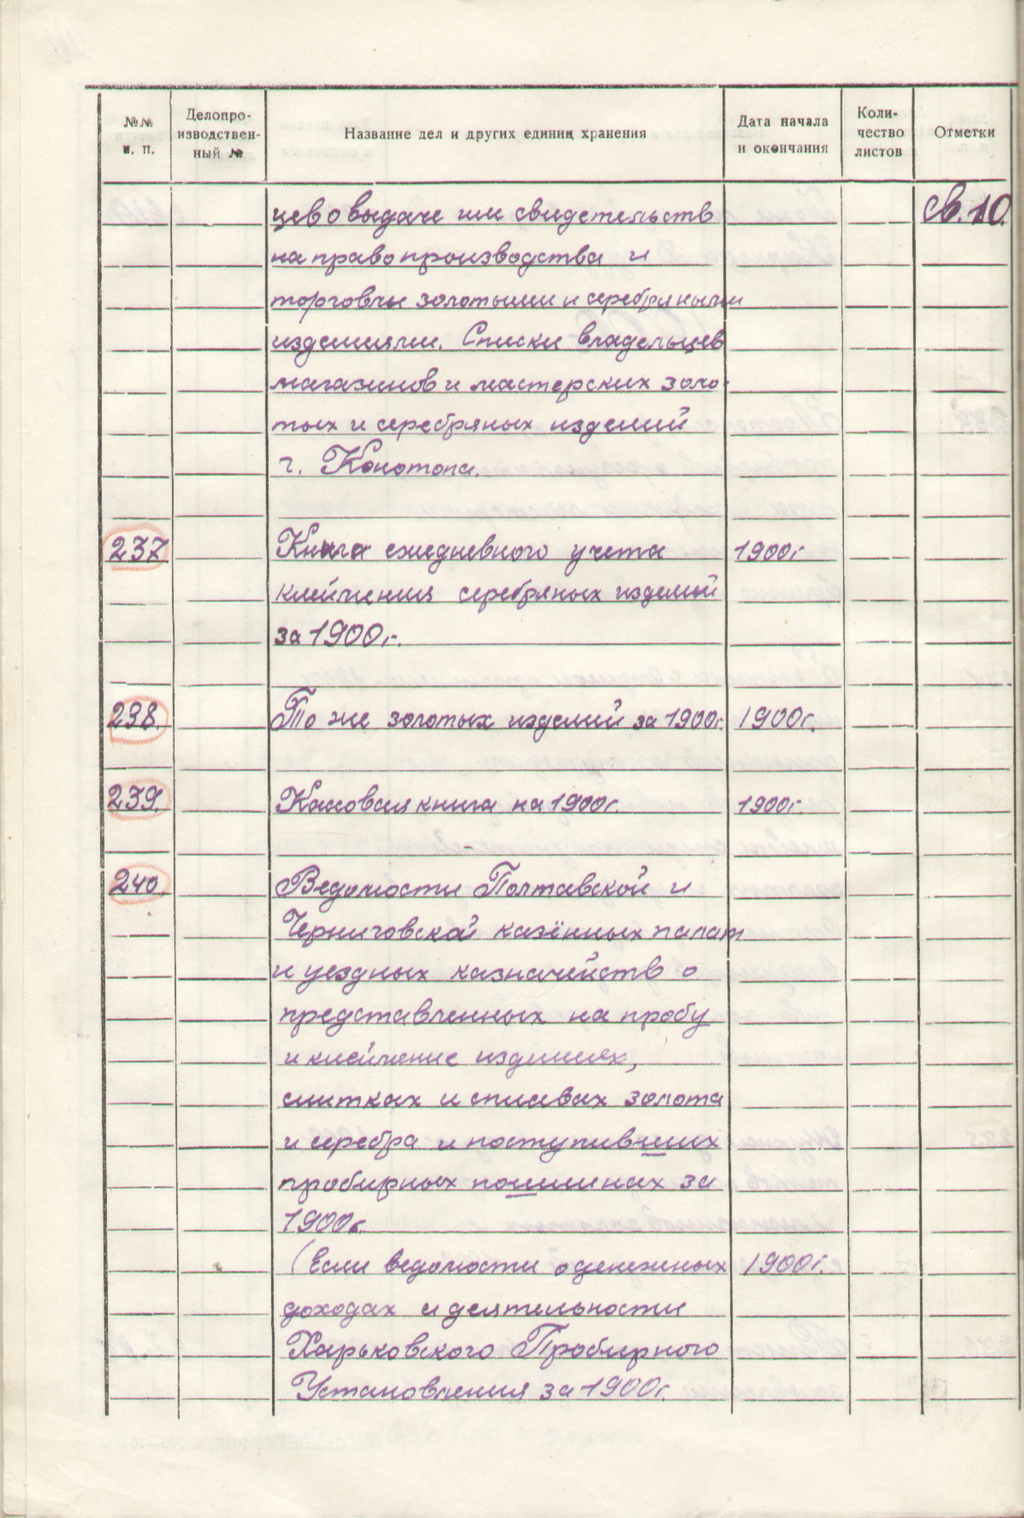 №№ п. п. Делопроизводственный № Название дел и других единиц хранения Дата начала и окончания Количество листов Отметки
цев о выдаче им свидетельств св. 10.
на право производства и
торговлы золотыми и серебряными
изделиями. Списки владельцев
магазинов и мастерских золо-
тых и серебряных изделий
г. Конотопа.
237 Книга ежедневного учета 1900г.
клеймения серебряных изделий
за 1900г.
238. То же золотых изделий за 1900г. 1900г.
239. Кассовая книга на 1900г. 1900г.
240. Ведомости Полтавской и
Черниговской казённых палат
и уездных казначейств о
представленных на пробу
и клеймение изделиях,
слитках и сплавах золота
и серебра и поступивших
пробирных пошлинах за
1900г.
(Если ведомости о денежных 1900г.
доходах и деятельности
Харьковского Пробирного
Установления за 1900г.